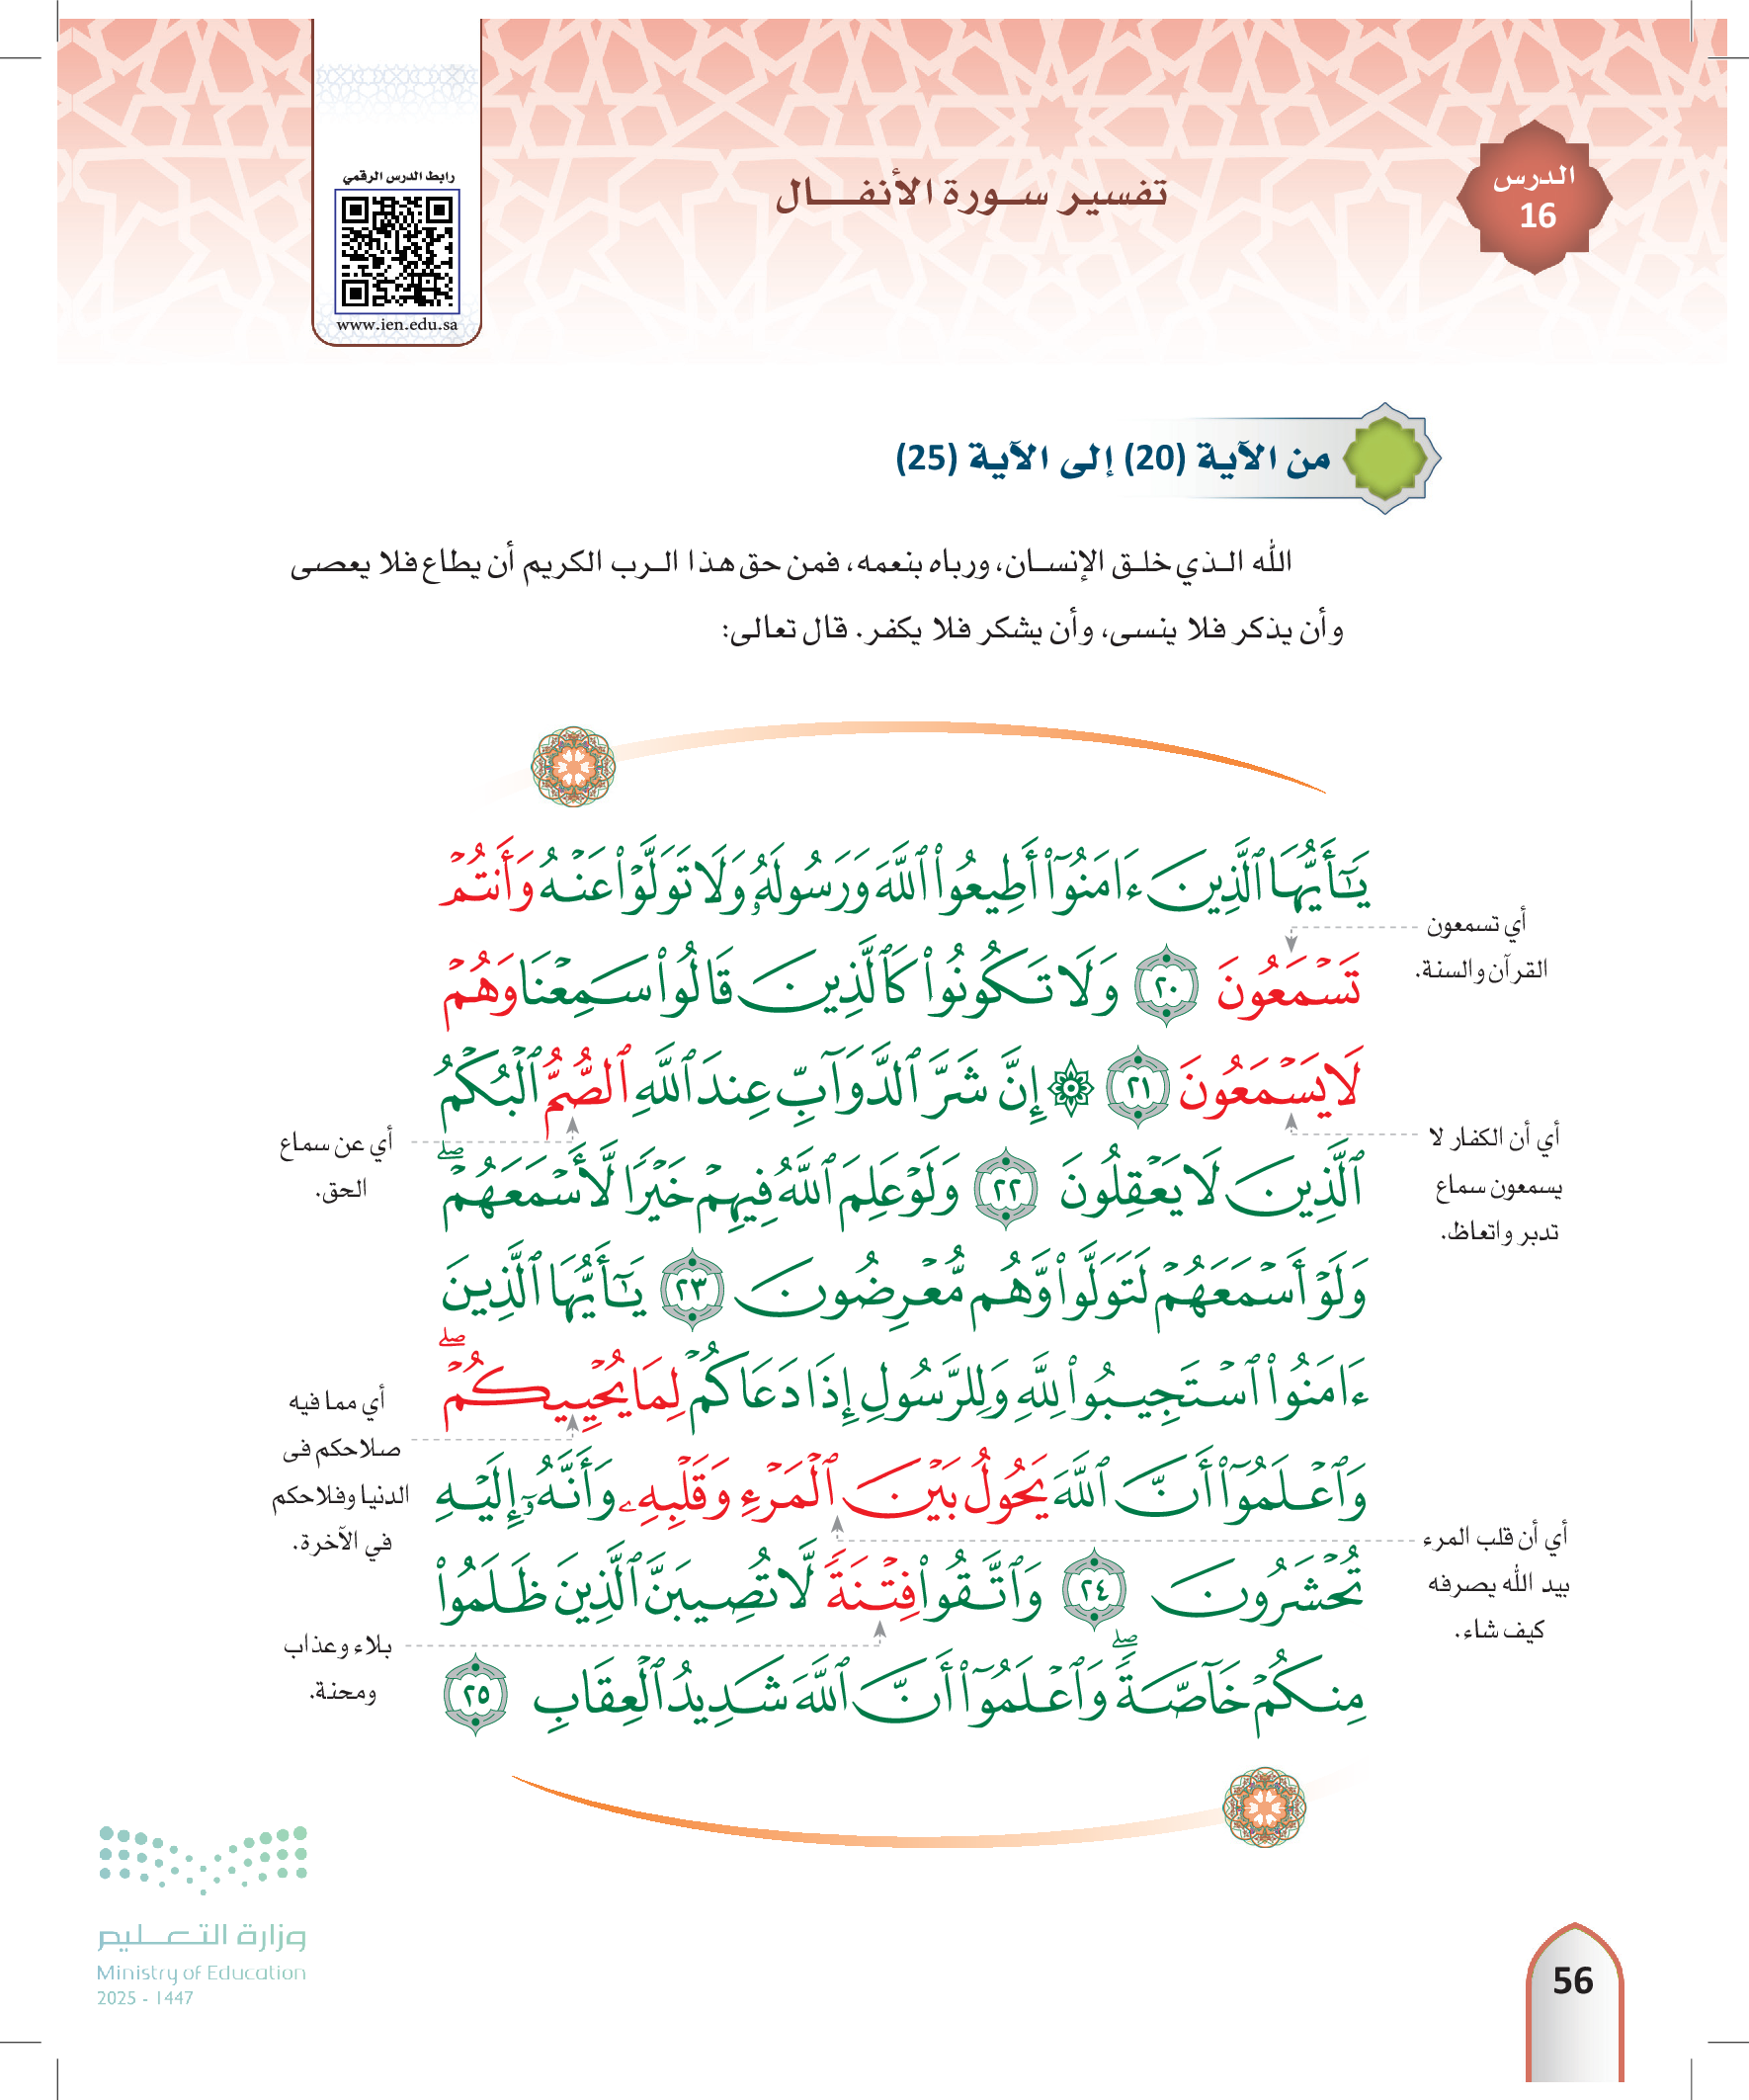 رابط الدرس الرقمي
www.ien.edu.sa
تفسير سورة الأنفال
الدرس
16
من الآية (20) إلى الآية (25)
الله الذي خلق الإنسان، ورباه بنعمه، فمن حق هذا الرب الكريم أن يطاع فلا يعصى
وأن يذكر فلا ينسى، وأن يشكر فلا يكفر. قال تعالى:
يَٰٓأَيُّهَا ٱلَّذِينَ ءَامَنُوٓا۟ أَطِيعُوا۟ ٱللَّهَ وَرَسُولَهُۥ وَلَا تَوَلَّوْا۟ عَنْهُ وَأَنتُمْ
تَسْمَعُونَ ٢٠ وَلَا تَكُونُوا۟ كَٱلَّذِينَ قَالُوا۟ سَمِعْنَا وَهُمْ
لَا يَسْمَعُونَ ٢١ ۞ إِنَّ شَرَّ ٱلدَّوَآبِّ عِندَ ٱللَّهِ ٱلصُّمُّ ٱلْبُكْمُ
ٱلَّذِينَ لَا يَعْقِلُونَ ٢٢ وَلَوْ عَلِمَ ٱللَّهُ فِيهِمْ خَيْرًا لَّأَسْمَعَهُمْ ۖ
وَلَوْ أَسْمَعَهُمْ لَتَوَلَّوا۟ وَّهُم مُّعْرِضُونَ ٢٣ يَٰٓأَيُّهَا ٱلَّذِينَ
ءَامَنُوا۟ ٱسْتَجِيبُوا۟ لِلَّهِ وَلِلرَّسُولِ إِذَا دَعَاكُمْ لِمَا يُحْيِيكُمْ ۖ
وَٱعْلَمُوٓا۟ أَنَّ ٱللَّهَ يَحُولُ بَيْنَ ٱلْمَرْءِ وَقَلْبِهِۦ وَأَنَّهُۥٓ إِلَيْهِ
تُحْشَرُونَ ٢٤ وَٱتَّقُوا۟ فِتْنَةً لَّا تُصِيبَنَّ ٱلَّذِينَ ظَلَمُوا۟
مِنكُمْ خَآصَّةً ۖ وَٱعْلَمُوٓا۟ أَنَّ ٱللَّهَ شَدِيدُ ٱلْعِقَابِ ٢٥
أي تسمعون
القرآن والسنة.
أي أن الكفار لا
يسمعون سماع
تدبر واتعاظ.
أي عن سماع
الحق.
أي مما فيه
صلاحكم فى
الدنيا وفلاحكم
في الآخرة.
أي أن قلب المرء
بيد الله يصرفه
كيف شاء.
بلاء وعذاب
ومحنة.
وزارة التعليم
Ministry of Education
2025 - 1447
56